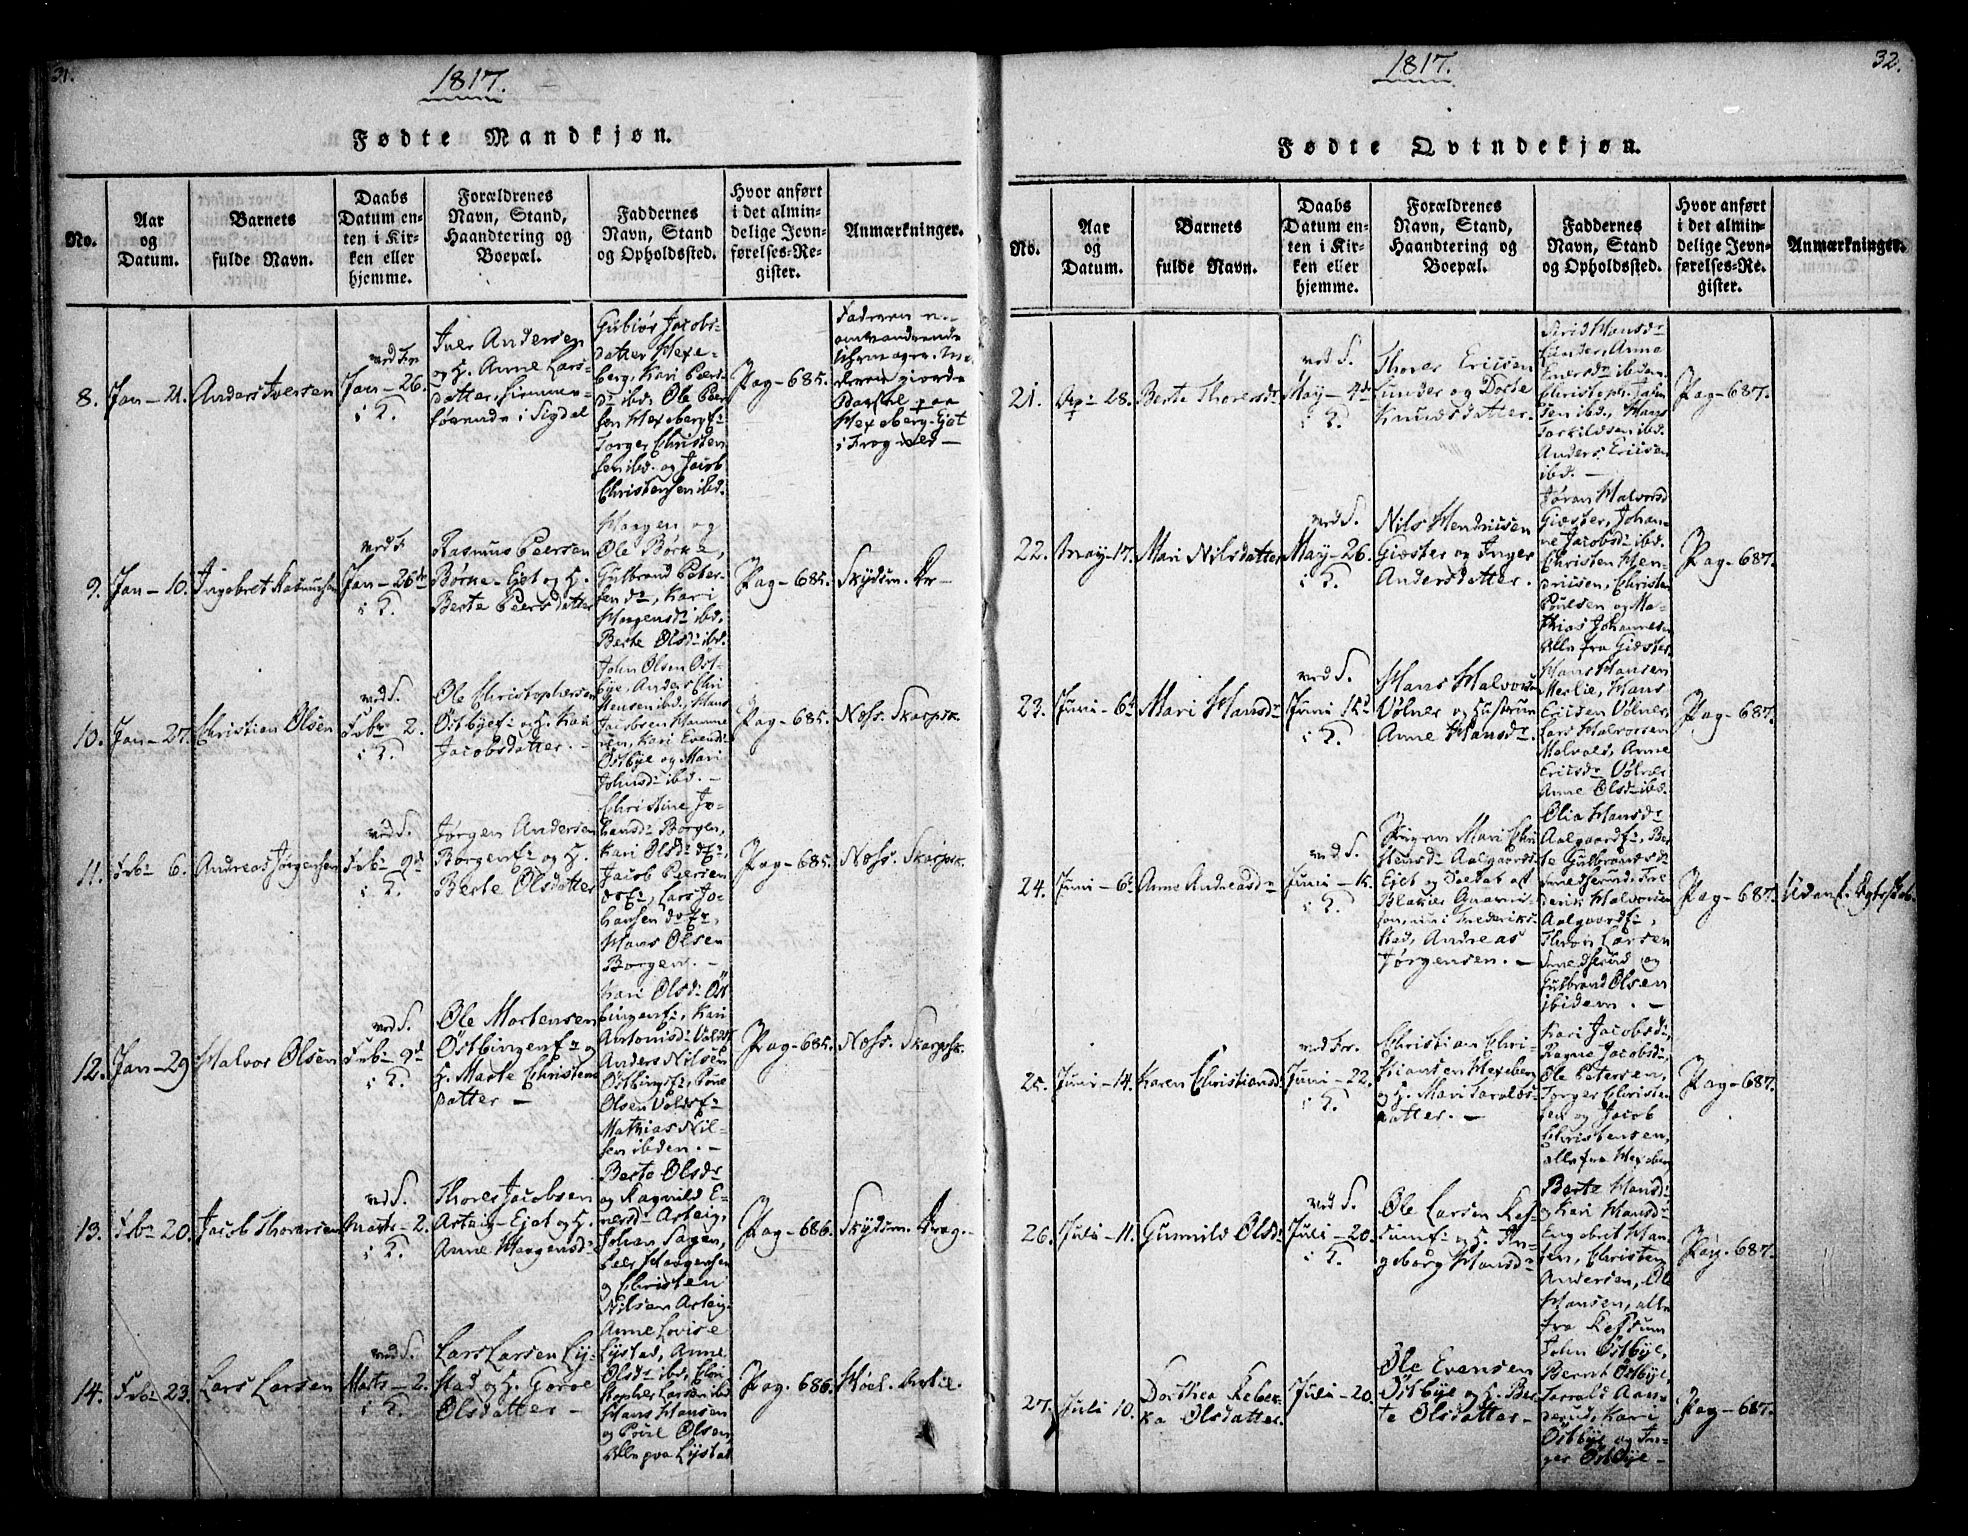 31.
1817.
Fødte Mandkjøn.
No.
Aar
og
Datum.
Barnets
fulde Navn.
Daabs
Datum en-
ten i Kir-
ken eller
hjemme.
Forældrenes
Navn, Stand,
Haandtering og
Boepæl.
Faddernes
Navn, Stand
og Opholdssted.
Hvor anført
i det almin-
delige Jevn-
førelses-Re-
gister.
Anmærkninger.
8.
Jan - 21.
Anders Iversen
Jan - 26.
i K.
Iver Andersen
og H. Anne Lars-
datter
i Sigdal
Gubiør Jacobs-
datter Hexe-
berg, Kari Peers-
dr ibd. Ole Peer-
sen Hexeberg
Torger Christen
sen ibd. og Jacob
Christensen ibd.
Pag - 685.
Faderen
Hexeberg
9.
Jan - 10.
Ingebret Rasmusen
Jan - 26
i K.
Rasmus Peersen
Børke-Ejet og H.
Berte Peersdatter
Haagen og
Ole Børke,
Gulbrand Peter-
sen, Kari
Haagensdr ibd.
Berte Olsdr ibd.
Pag - 685.
Skydsm.
10.
Jan - 27.
Christian Olsen
ved S.
Febr - 2.
i K.
Ole Christophersen
Østbye og H. Kari
Jacobsdatter. -
John Olsen Øst-
bye, Anders Chri
stensen ibd. Hans
Jacobsen Hamme
ren, Kari Evensdr
Østbye og Mari
Johnsdr ibd. -
Pag - 685.
Næss. Skarpsk.
11.
Febr 6.
Andreas Jørgensen
ved S.
Febr 9d
i K.
Jørgen Andersen
Borgen og H.
Berte Olsdatter
Christine Jo-
hansdr Borgen,
Kari Olsdr
Jacob Peersen
Lars Jo-
hansen
Hans Olsen
Borgen. -
Pag - 685.
Næss. Skarpsk.
12.
Jan - 29
Halvor Olsen
ved S.
Febr - 9d
i K.
Ole Mortensen
Østbingen og
H. Marte Christens
datter -
Kari Olsdr Øst
bingen, Kari
Antonisdr
Anders Nilsen
Olsen
Mathias Nil-
sen ibden. -
Pag - 685.
Næss. Skarpsk.
13.
Febr 20.
Jacob Thoresen
ved S.
Marts - 2.
i K.
Thores Jacobsen
Asteig-Ejet og H.
Anne Haagensdr
Berte Olsdr
og Ragnild E-
nersdr Asteig,
Johan Sagen,
Peer Haagensen
og Christen
Nilsen Asteig.
Pag - 686.
Skydsm.
14.
Febr 23.
Lars Larsen
ved S.
Marts - 2.
i K.
Lars Larsen Ly-
stad og H. Gorve
Olsdatter -
Anne Lovise
Lystad, Anne
Olsdr ibd, Chri
stopher Larsen ibd
Hans Hansen
og Povel Olsen
Alle paa Lystad
Pag. 686.
32.
1817.
Fødte Qvindekjøn.
No.
Aar
og
Datum.
Barnets
fulde Navn.
Daabs
Datum en-
ten i Kir-
ken eller
hjemme.
Forældrenes
Navn, Stand,
Haandtering og
Boepæl.
Faddernes
Navn, Stand
og Opholdssted.
Hvor anført
i det almin-
delige Jevn-
førelses-Re-
gister.
Anmærkninger.
21.
Apr 28.
Berte Thoresdr
ved S.
May - 4de
i K.
Thores Ericsen
Funder og Dorte
Knudsdatter.
Siri Hansdr
Funder, Anne
Enersdr ibidem
Christoph. Jahn
sen ibd., Hans
Torkildsen ibd.
Anders Ericsen
ibd. -
Pag - 687.
22.
May - 17.
Mari Nilsdatter
ved S.
May - 26.
i K.
Nils Hendricsen
Giester og Inger
Andersdatter.
Jøran Halvorsd
Giester, Johan-
ne Jacobsdr ibd.
Christen Hen-
dricsen, Christen
Poulsen og Ma-
thias Johannesen
Alle fra Giester.
Pag - 687.
23.
Juni - 6t
Mari Hansdr
ved S.
Juni 15d
i K.
Hans Halvorsen
Vølner og Hustrue
Anne Hansdr.
Hans Hansen
Merlie, Hans
Ericsen Vølner,
Lars Halvorsen
Malvols, Anne
Ericsdr Vølner
Anne Olsdr ibd.
Pag - 687.
24.
Juni - 6te
Anne Andreasdr
ved S.
Juni - 15.
i K.
Pigen Mari Chri
stensdr Aalgaards
Ejet og Soldat af
Blakier
son, nu i Frederik-
stad, Andreas
Jørgensen. -
Olia Hansdr
Aalgaard, Ber
te Gulbrandsdr
Smedsrud, Fre
deric Halvorsen
Aalgaard,
Thron Larsen
Smedsrud og
Gulbrand Olsen
ibidem. -
Pag - 687.
Uden f. Ægteskab.
25.
Juni - 14.
Karen Christiansd.
ved Fr.
Juni - 22.
i K.
Christian Chri-
stiansen Hexeberg
og H. Mari Taralds-
datter. -
Kari Jacobsdr,
Ragne Jacobsdr,
Ole Petersen,
Torger Christen
sen og Jacob
Christensen,
alle fra Hexeberg
Pag - 687.
26.
Juli - 11.
Gunnild Olsdr
ved S.
Juli - 20.
i K.
Ole Larsen Kes-
sum og H. In-
geborg Hansdr
Berte Hansdr
og Kari Hansdr
Engebret Han-
sen, Christen
Andersen, Ole
Hansen, alle
fra Kessum
Pag. 687.
27.
Juli 10.
Dorthea Rebek-
ka Olsdatter
Juli - 20.
Ole Evensen
Østbye og H. Ber-
te Olsdatter -
John Østbye,
Bernt Østbye,
Tarald Aan-
nerud, Kari
Østbye og In-
ger Østbye -
Pag - 687.